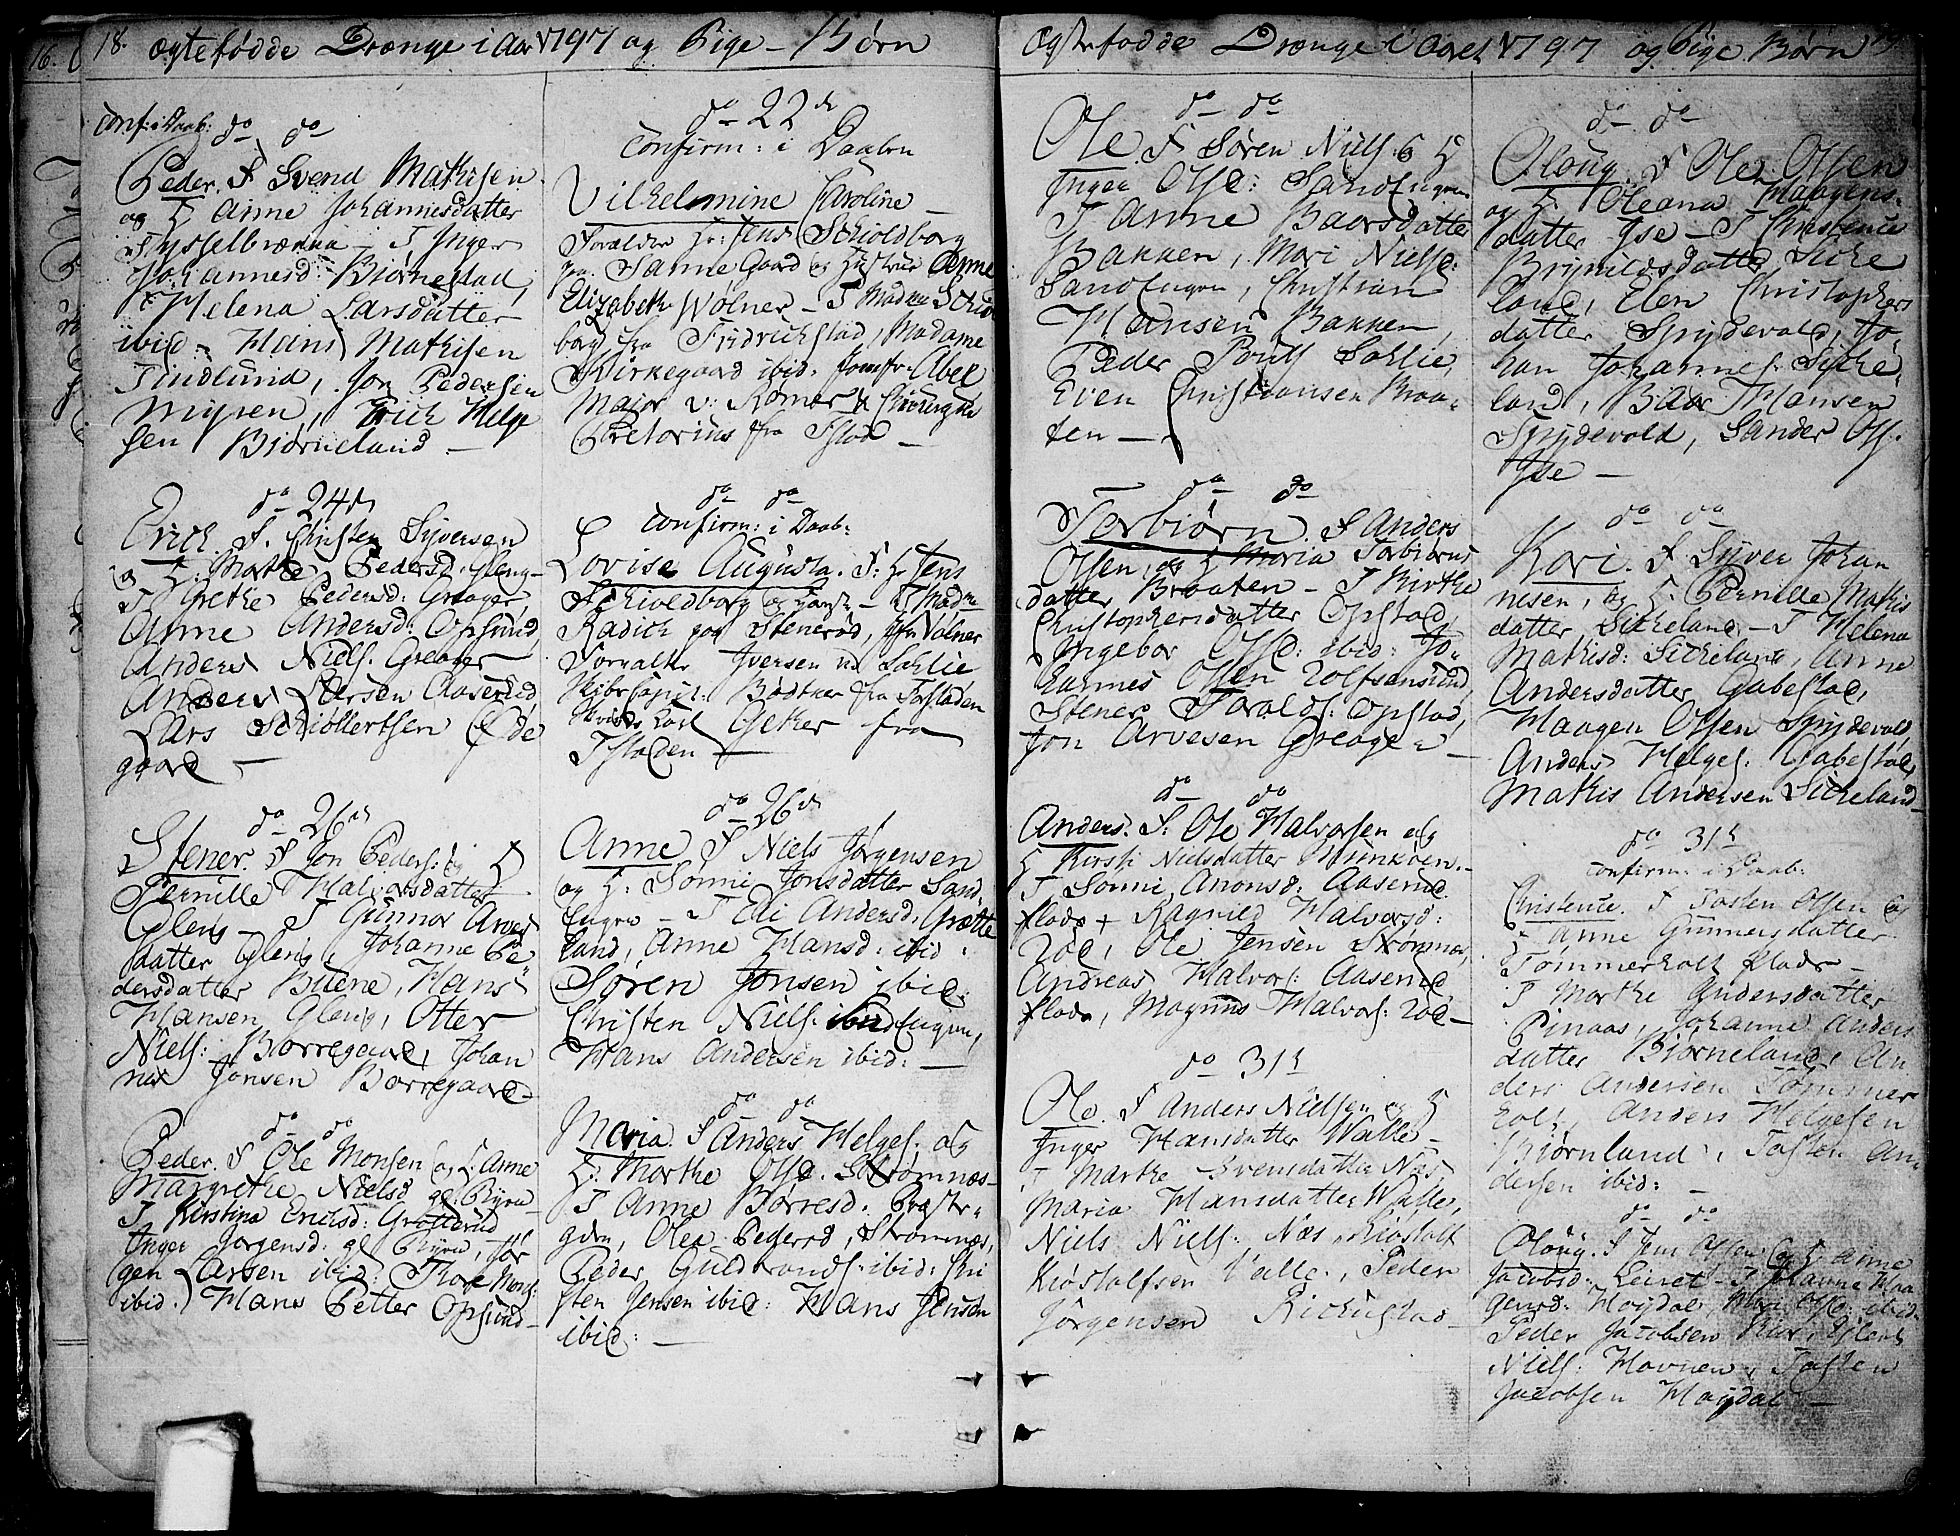 18. Ægtefödde Drænge i Aar 1797 og Pige-Börn
Conf: i Daab:
do do
Peder. F Svend Mathisen
og H Anne Johannesdatter
T Inger
Johannesd: Biørnestad,
Helena Larsdatter
ibid - Hans Mathisen
Tindlund, Jon Pedersen
Mysen, Erich Helge
sen Biørneland -
do 24de
Erich. F. Christen Syversen
og H. Marthe Pedersd. Gleng-
T Grethe Pedersd: Greager
Anne Andersd: Opsund,
Anders Niels. Greager
Anders Larsen Aaserud,
Lars Schiöllertsen Øde
gaard -
do 26de
Stener. F Jon Peders: og H
Pernille Halvorsdatter
Glens - T Gunnor Arves
datter Glens, Johanne Pe
dersdatter Buene, Hans
Hansen Glens, Otter
Niels: Borregaard, Johan
nes Jonsen Borregaard-
do do
Peder. F Ole Monsen og H. Anne
Margrethe Nielsd gl: Byre-
T Kirstina Erichsd: Grötterud
Inger Jorgensd: gl Byre, Jør
gen Larsen ibid: Thore Mons:
ibid. Hans Petter Opsund-
do 22de
Confirm: i Daaben
Vilhelmine Caroline -
Forældre Hr: Jens Schioldborg
paa Sanne Gaard og Hustrue Anne
Elizabeth Wølner - T Madme Schiol
borg fra Fridrichstad, Madame
Kirkegaard ibid: Jomfr Abel
Major v: Rømer
Pretorius fra Fstad -
do do
Confirm: i Daab:
Lovise Augusta. F: Hr Jens
Schioldborg og Hanst - T Madme
Radich paa Stenerød, Jfr Vølner
Forvalter Iversen ved Sahlie
Skibscapit: Bødtker fra Fstaden
Geker fra
Fstaden -
do 26de
Anne F Niels Jørgensen
og H: Sonni Jonsdatter Sand
Engen - T Edi Andersd: Grætte
land, Anne Hansd: ibid:
Søren Jonsen ibid:
Christen Niels: Engen,
Hans Andersen ibid: -
do do
Maria. F Anders Helges. og
H: Marthe Olsd. Strømnæs-
T Anne Børresd: Bøgster-
gdrn, Olea Pedersd, Strømnæs,
Peder Guldbrands: ibid: Kri
sten Jensen ibid: Hans Jensen
ibid: -
Ægtefødde Drænge i Aaret 1797 og Pige Børn 19.
do do
Ole F Søren Niels. & H
Inger Olsd: SandEngen
T Anne Baarsdatter
Bakken, Mari Nielsd:
SandEngen, Christian
Hansen Bakken,
Peder Pouls Sahlie,
Even Christiansen Braa-
ten -
do do
Torbiørn. F Anders
Olsen, og H Maria Torbiørns
datter Braaten - T Birthe
Christophersdatter Opstad,
Ingebor Olsd: ibid: Jo-
hannes Olsen Rolfsønsund,
Stener Toralds: Opstad,
Jon Arvesen Greager -
do do
Anders. F: Ole Halvorsen og
H Kirsti Nielsdatter
T Sonni Anonsd: Aaserud
plads + Ragnild Halvorsd:
Roe, Ole Jensen Strømnæs,
Andreas Halvors: Aaserud
plads, Magnus Halvors: Roe-
do 31te
Ole. F Anders Nielsen og H
Inger Hansdatter Walle-
T Marthe Svensdatter Næs,
Maria Hansdatter Walle,
Niels Niels: Næs, Kiøstolf
Kiøstolfsen Valle, Peder
Jörgensen Richustad-
do do
Oloug. F Ole Olsen
og H. Oleana Haagens-
datter Yse - T Christence
Brynildsdatter Siche
land, Elen Christophers
datter Spydevold, Jo-
han Johannes: Siche-
land, Baar Hansen
Spydevold, Sander Ols.
Yse -
do do
Kari. F Syver Johan
nesen, og H. Pernille Mathis
datter Sicheland - T Helena
Mathisd: Sicheland, Anne
Andersdatter Gabestad,
Haagen Olsen Spydevold,
Anders Helges. Gabestad,
Mathis Andersen Sicheland-
do 31te
Confirm: i Daab:
Christence. F Tosten Olsen og
H Anne Gunnersdatter
Tømmerholt plads -
T Marthe Andersdatter
Pinaas, Johanne Anders
datter Biørneland, An
ders Andersen Tømmer
holt, Anders Helgesen
Biørnland, Tosten An-
dersen ibid: -
do do
Oloug. F Jens Olsen og H Anne
Jacobsd: Leiret - T Johanne Haa
gensd: Høydal, Mari Olsd: ibid.
Peder Jacobsen
Niels: Havnen, Tosten
Jacobsen Høydal -